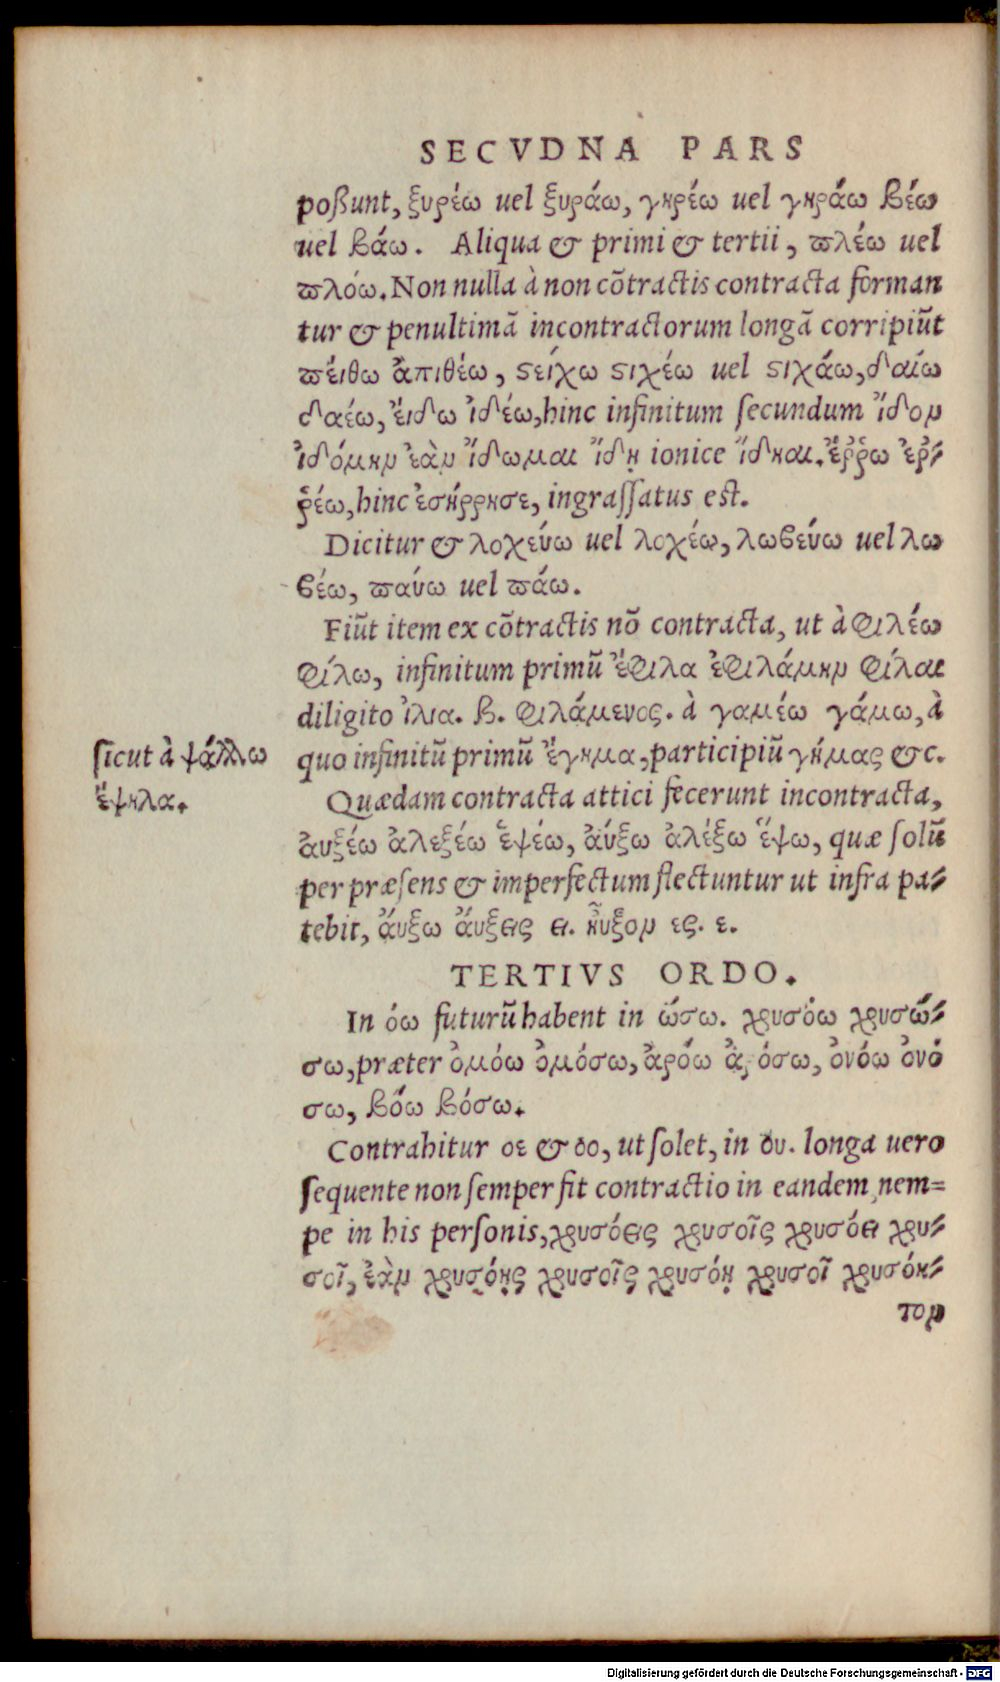 SECVDNA PARS
poßunt, ξυρέω uel ξυράω, γηρέω uel γηράω βέω
uel βάω. Aliqua & primi & tertii, πλέω uel
πλόω. Non nulla à non cōtractis contracta forman
tur & penultimā incontractorum longā corripiūt
πείθω ἀπιθέω, στείχω στιχέω uel στιχάω, δαίω
δαέω, ἔιδω ἰδέω, hinc infinitum secundum ἴδον
ἰδόμην ἐὰν ἴδωμαι ἴδῃ ionice ἴδηαι. ἔῤῥω ἐῤ-
ῥέω, hinc ἐσήρρησε, ingraſſatus est.
Dicitur & λοχεύω uel λοχέω, λωβεύω uel λω
βέω, παύω uel πάω.
Fiūt item ex cōtractis nō contracta, ut à φιλέω
φίλω, infinitum primū ἔφιλα ἐφιλάμην φίλαι
diligito ἰλια. β. φιλάμενος. à γαμέω γάμω, à
quo infinitū primū ἔγημα, participiū γήμας &c.
ſicut à ψάλλω
ἔψηλα.
Quædam contracta attici fecerunt incontracta,
ἀυξέω ἀλεξέω ἑψέω, ἀύξω ἀλέξω ἕψω, quæ ſolū
per præſens & imperfectum flectuntur ut infra pa-
tebit, ἄυξω ἄυξεις ει. ηὖξον ες. ε.
TERTIVS ORDO.
In όω futurū habent in ώσω. χρυσόω χρυσώ-
σω, præter ὀμόω ὀμόσω, ἀρόω ἀρόσω, ὀνόω ὀνό
σω, βόω βόσω.
Contrahitur οε & οο, ut ſolet, in ου. longa uero
ſequente non ſemper fit contractio in eandem nem=
pe in his perſonis, χρυσόεις χρυσοῖς χρυσόει χρυ-
σοῖ, ἐὰν χρυσόῃς χρυσοῖς χρυσόῃ χρυσοῖ χρυσόη-
τον
Digitalisierung gefördert durch die Deutsche Forschungsgemeinschaft - DFG